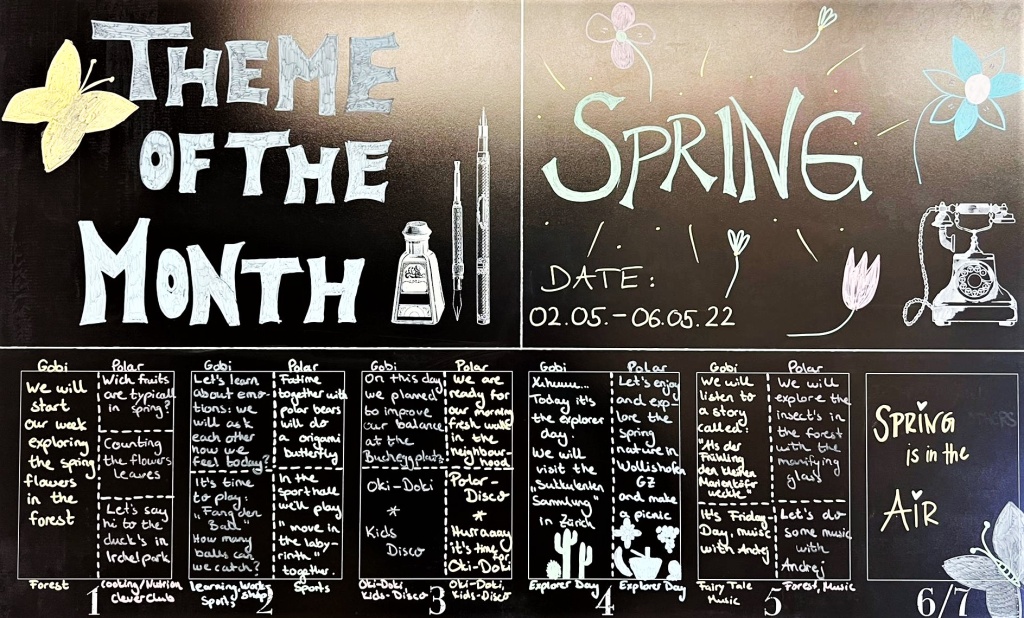 THEME
OF THE
MONTH
SPRING
DATE:
02.05.-06.05.22
Gobi
We will
start
our week
exploring
the spring
flowers
in the
forest
Forest
Polar
Wich fruits
are typicall
in spring?
Counting
the flowers
leaves
Let's say
hi to the
duck's in
Irchelpark
Cooking/Nutrition
Cleverclub
1
Gobi
Let's learn
about emo-
tions: we
will ask
each other
how we
feel today?
It's time
to play:
"Fang den
Ball"
How many
balls can
we catch?
learning workshop
Sports
Polar
Fatime
together with
polar bears
will do
a origami
butterfly
In the
sporthall
we'll play
"move in
the laby-
rinth"
together.
Sports
2
Gobi
On this day
we planned
to improve
our balance
at the
Bucheggplatz
Oki-Doki
*
Kids
Disco
Oki-Doki,
Kids-Disco
Polar
We are
ready for
our morning
fresh walk
in the
neighbour-
hood
Polar-
Disco
*
Hurraaay
it's time for
Oki-Doki
Oki-Doki,
Kids-Disco
3
Gobi
Today it's
the explorer
day.
We will
visit the
"Sukkulenten
Sammlung"
in Zürich
Explorer Day
Polar
Let's enjoy
and exp-
lore the
spring
nature in
Wollishofen
GZ
and make
a picnic
Explorer Day
4
Gobi
We will
listen to
a story
called:
"Als der
Frühling
den kleinen
Marienkäfer
weckte"
It's Friday-
Day, music
with Andrej
Fairy Tale
Music
Polar
We will
explore the
insect's in
the forest
with the
manifying
glass
Let's do
some music
with
Andrej
Forest, Music
5
SPRING
is in the
AIR
6/7